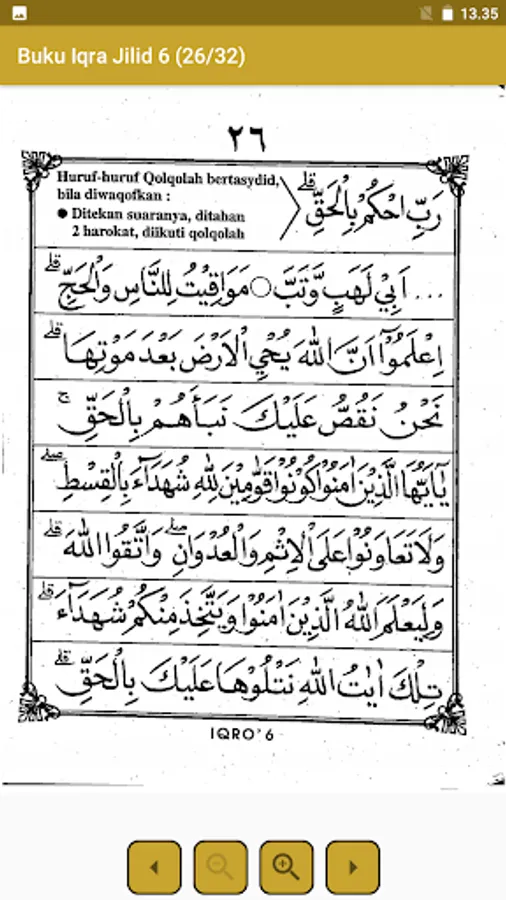 13.35
Buku Iqra Jilid 6 (26/32)
٢٦
Huruf-huruf Qolqolah bertasydid,
bila diwaqofkan :
● Ditekan suaranya, ditahan
2 harokat, diikuti qolqolah
رَبِّ احْكُمْ بِالْحَقِّ ۗ
... اَبِيْ لَهَبٍ وَّتَبَّ ○ مَوَاقِيْتُ لِلنَّاسِ وَالْحَجِّ ۗ
اِعْلَمُوْٓا اَنَّ اللّٰهَ يُحْيِ الْاَرْضَ بَعْدَ مَوْتِهَا ۗ
نَحْنُ نَقُصُّ عَلَيْكَ نَبَاَهُمْ بِالْحَقِّ ۚ
يٰٓاَيُّهَا الَّذِيْنَ اٰمَنُوْا كُوْنُوْا قَوّٰمِيْنَ لِلّٰهِ شُهَدَآءَ بِالْقِسْطِ ۖ
وَلَا تَعَاوَنُوْا عَلَى الْاِثْمِ وَالْعُدْوَانِ ۖ وَاتَّقُوا اللّٰهَ ۗ
وَلِيَعْلَمَ اللّٰهُ الَّذِيْنَ اٰمَنُوْا وَيَتَّخِذَ مِنْكُمْ شُهَدَآءَ ۗ
تِلْكَ اٰيٰتُ اللّٰهِ نَتْلُوْهَا عَلَيْكَ بِالْحَقِّ ۗ
IQRO' 6